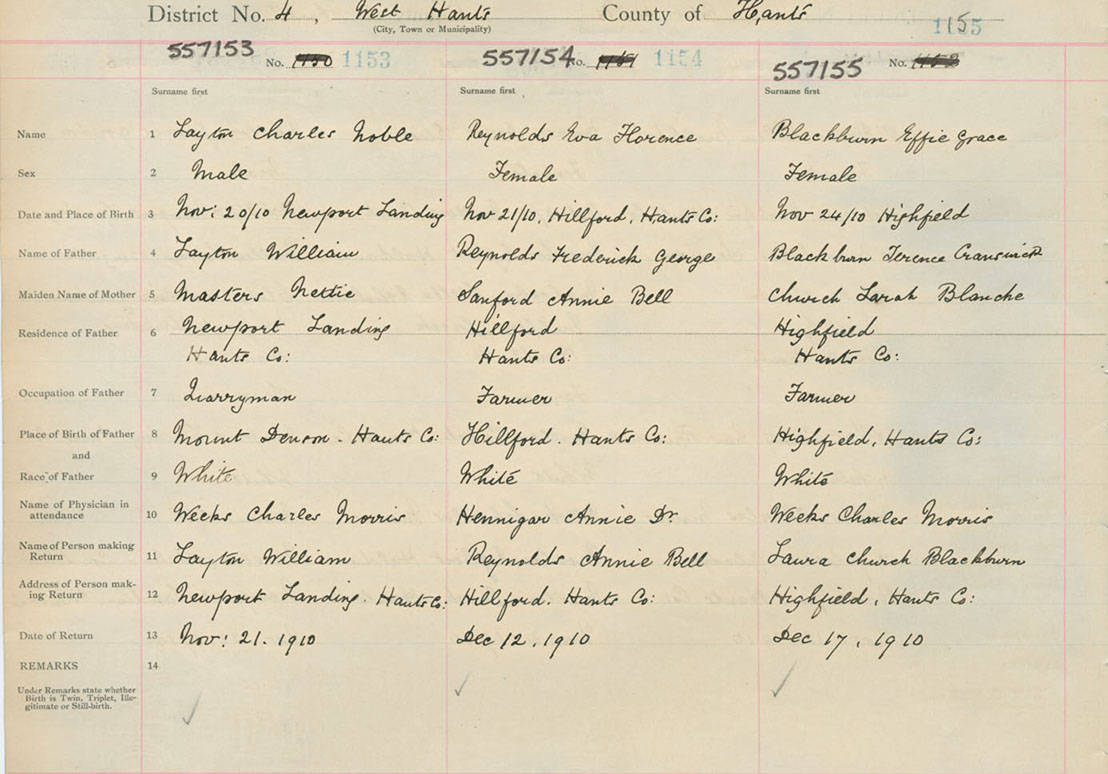 District No. 4, West Hants County of Hants
(City, Town or Municipality)
1155
557153 No. 1153 557154 No. 1154 557155 No.
Surname first Surname first Surname first
Name 1 Layton Charles Noble Reynolds Eva Florence Blackburn Effie Grace
Sex 2 Male Female Female
Date and Place of Birth 3 Nov: 20/10 Newport Landing Nov 21/10, Hillford, Hants Co: Nov 24/10 Highfield
Name of Father 4 Layton William Reynolds Frederick George Blackburn Terence
Maiden Name of Mother 5 Masters Nettie Sanford Annie Bell Church Sarah Blanche
Residence of Father 6 Newport Landing Hillford Highfield
Hants Co: Hants Co: Hants Co:
Occupation of Father 7 Quarryman Farmer Farmer
Place of Birth of Father 8 Mount Denson - Hants Co: Hillford. Hants Co: Highfield, Hants Co:
and
Race of Father 9 White White White
Name of Physician in
attendance 10 Weeks Charles Morris Hennigar Annie Dr Weeks Charles Morris
Name of Person making
Return 11 Layton William Reynolds Annie Bell Laura Church Blackburn
Address of Person mak-
ing Return 12 Newport Landing. Hants Co: Hillford. Hants Co: Highfield, Hants Co:
Date of Return 13 Nov: 21. 1910 Dec 12, 1910 Dec 17, 1910
REMARKS 14
Under Remarks state whether
Birth is Twin, Triplet, Ille-
gitimate or Still-birth.